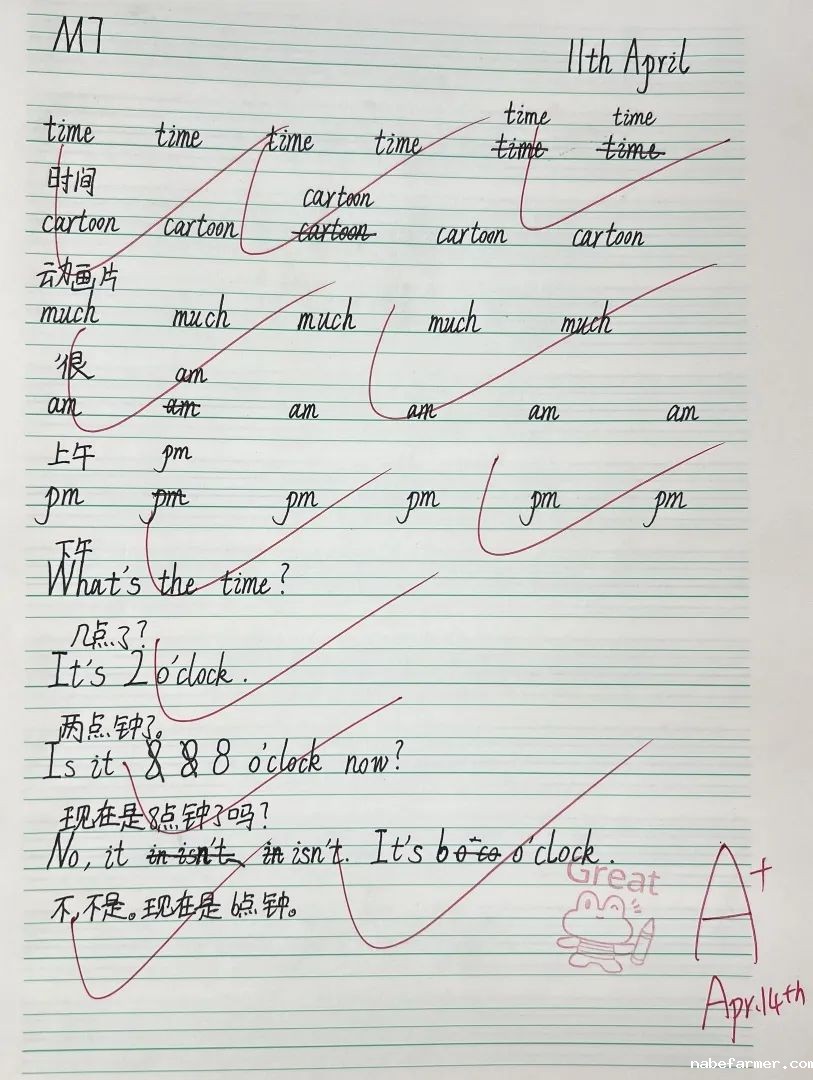 M7
11th April
time time
time time time time time time
时间
cartoon
cartoon cartoon cartoon cartoon cartoon
动画片
much much much much much
很 am
am am am am am am
上午 pm
pm pm pm pm pm pm
下午
What's the time?
几点了?
It's 2 o'clock.
两点钟了。
Is it 8 8 8 o'clock now?
现在是8点钟了吗?
No, it in isn't in isn't. It's 6 o'co o'clock.
不,不是。现在是6点钟。
Great
A+
Apr.14th
nabefarmer.com